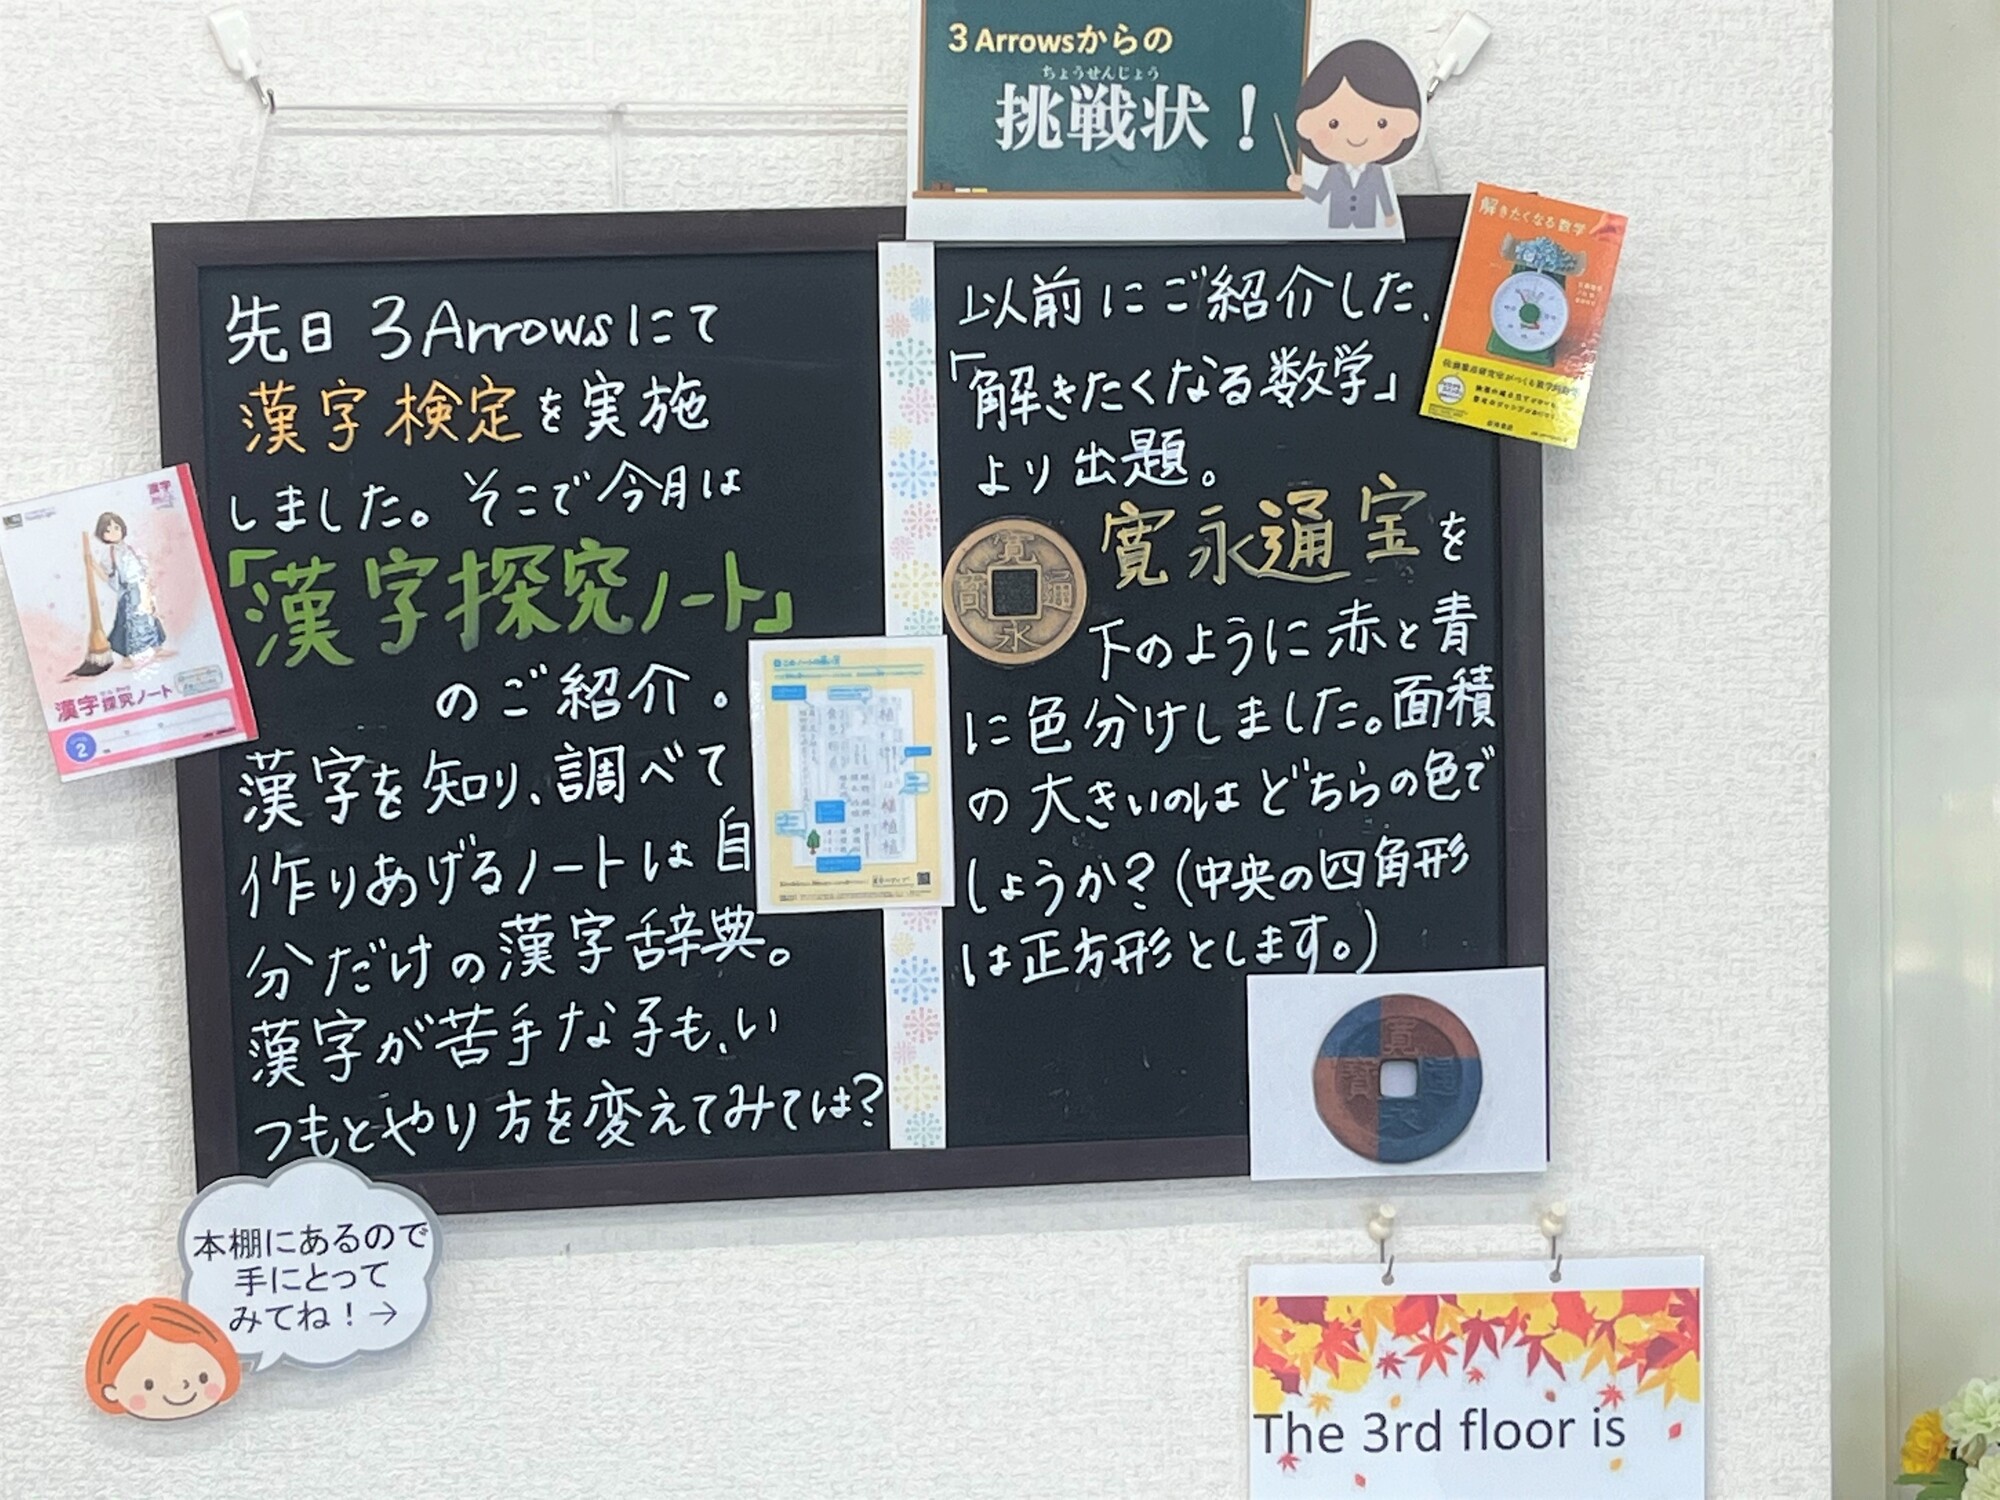 3 Arrowsからの
ちょうせんじょう
挑戦状！
先日 3 Arrowsにて
漢字検定を実施
しました。そこで今月は
「漢字探究ノート」
のご紹介。
漢字を知り、調べて
作りあげるノートは自
分だけの漢字辞典。
漢字が苦手な子も、い
つもとやり方を変えてみては?
以前にご紹介した、
「解きたくなる数学」
より出題。
寛永通宝を
下のように赤と青
に色分けしました。面積
の大きいのはどちらの色で
しょうか?(中央の四角形
は正方形とします。)
解きたくなる数学
漢字探究ノート
2
寛
通
永
寳
本棚にあるので
手にとって
みてね！→
The 3rd floor is